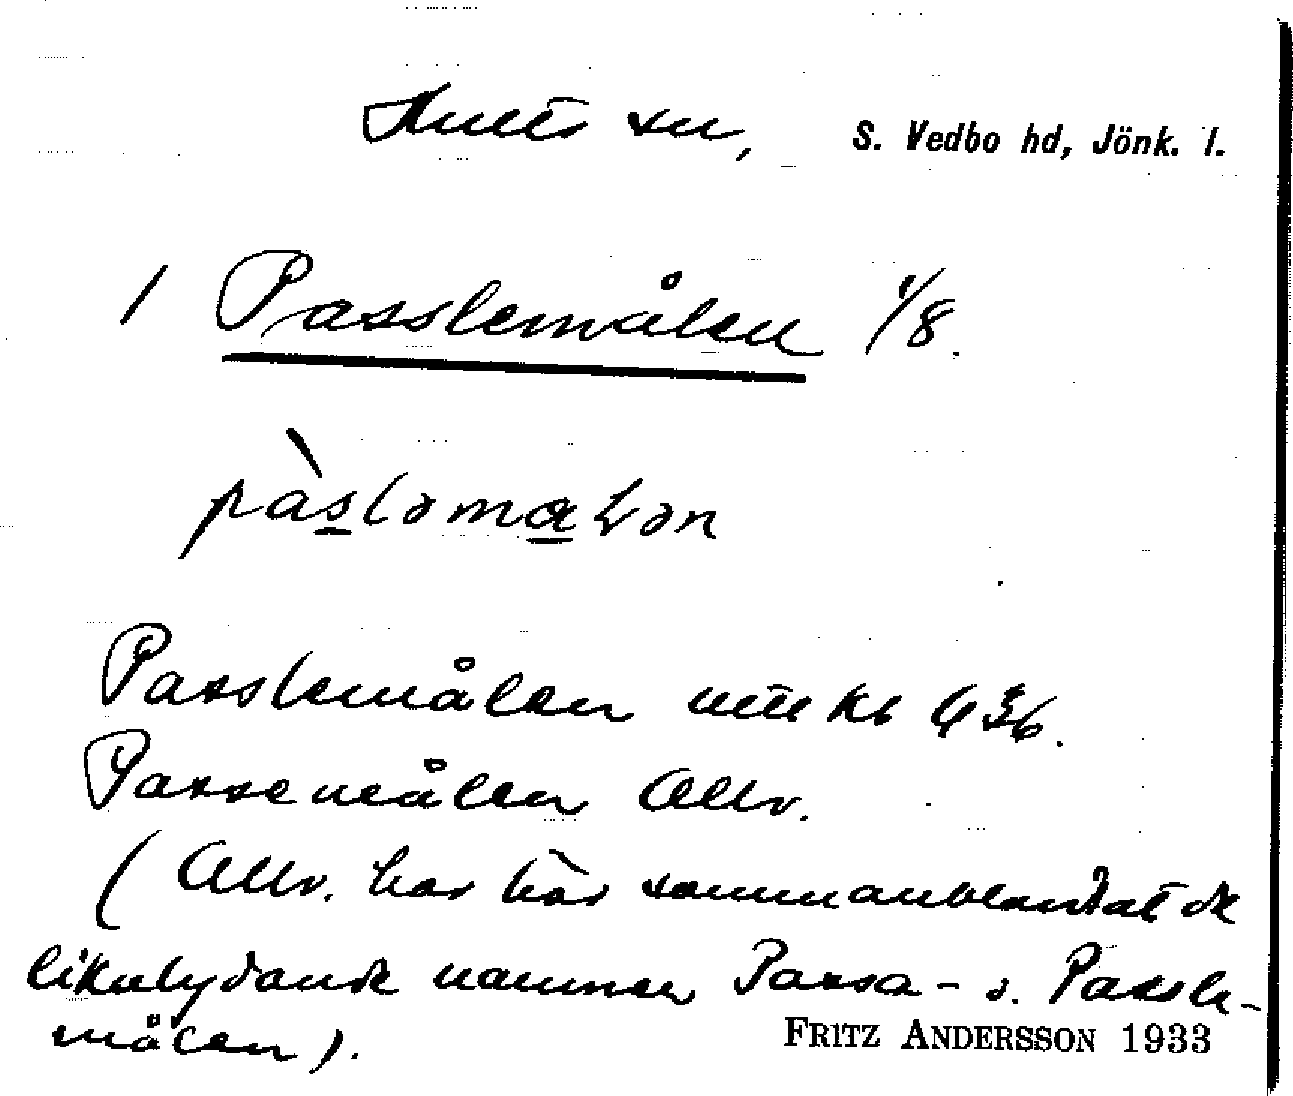 Hults sn, S. Vedbo hd, Jönk. l.
1 Passlemålen 1/8.
pàsləmaLən
Passlemålen mtl kb 436.
Passemålen Allv.
(Allv. har här sammanblandat de
likalydande namnen Passa- o. Passle-
målen).
FRITZ ANDERSSON 1933